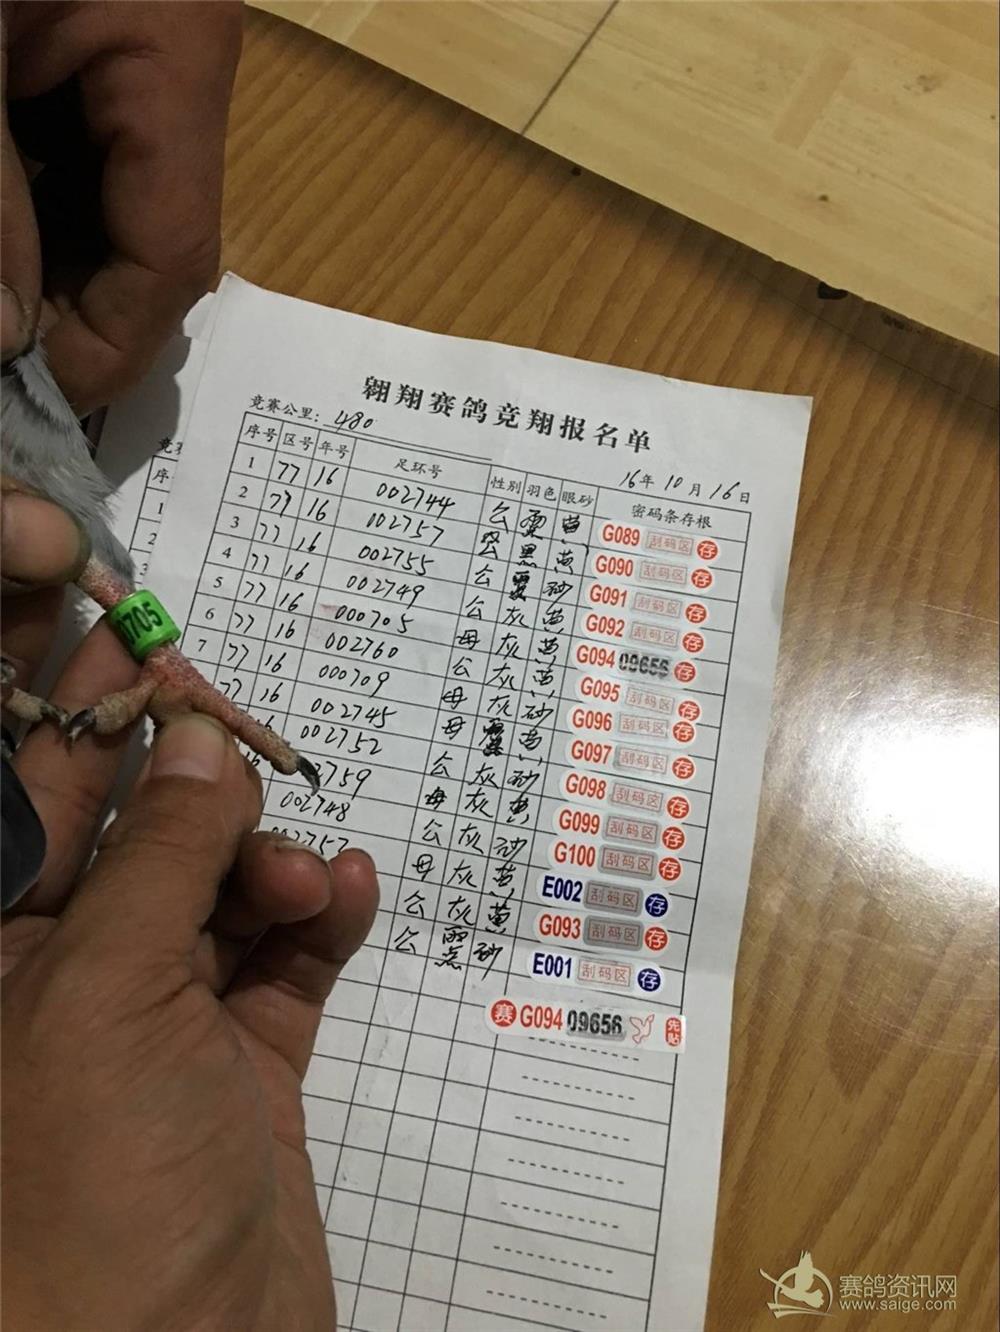 翱翔赛鸽竞翔报名单
竞赛公里: 480
16年10月16日
序号 区号 年号 足环号 性别 羽色 眼砂 密码条存根
1 77 16 002744 公 黄 G089 刮码区 存
2 77 16 002757 公 黑 黄 G090 刮码区 存
3 77 16 002755 公 砂 G091 刮码区 存
4 77 16 002749 公 灰 黄 G092 刮码区 存
5 77 16 000705 母 灰 黄 G094 09656 存
6 77 16 002760 公 灰 黄 G095 刮码区 存
7 77 16 000709 母 灰 砂 G096 刮码区 存
77 16 002745 母 黄 G097 刮码区 存
16 002752 公 灰 砂 G098 刮码区 存
16 2759 母 灰 黄 G099 刮码区 存
002748 公 灰 砂 G100 刮码区 存
母 灰 黄 E002 刮码区 存
公 灰 黄 G093 刮码区 存
公 雨点 砂 E001 刮码区 存
赛 G094 09656 先贴
705
竞赛
序
1
2
3
赛鸽资讯网
www.saige.com